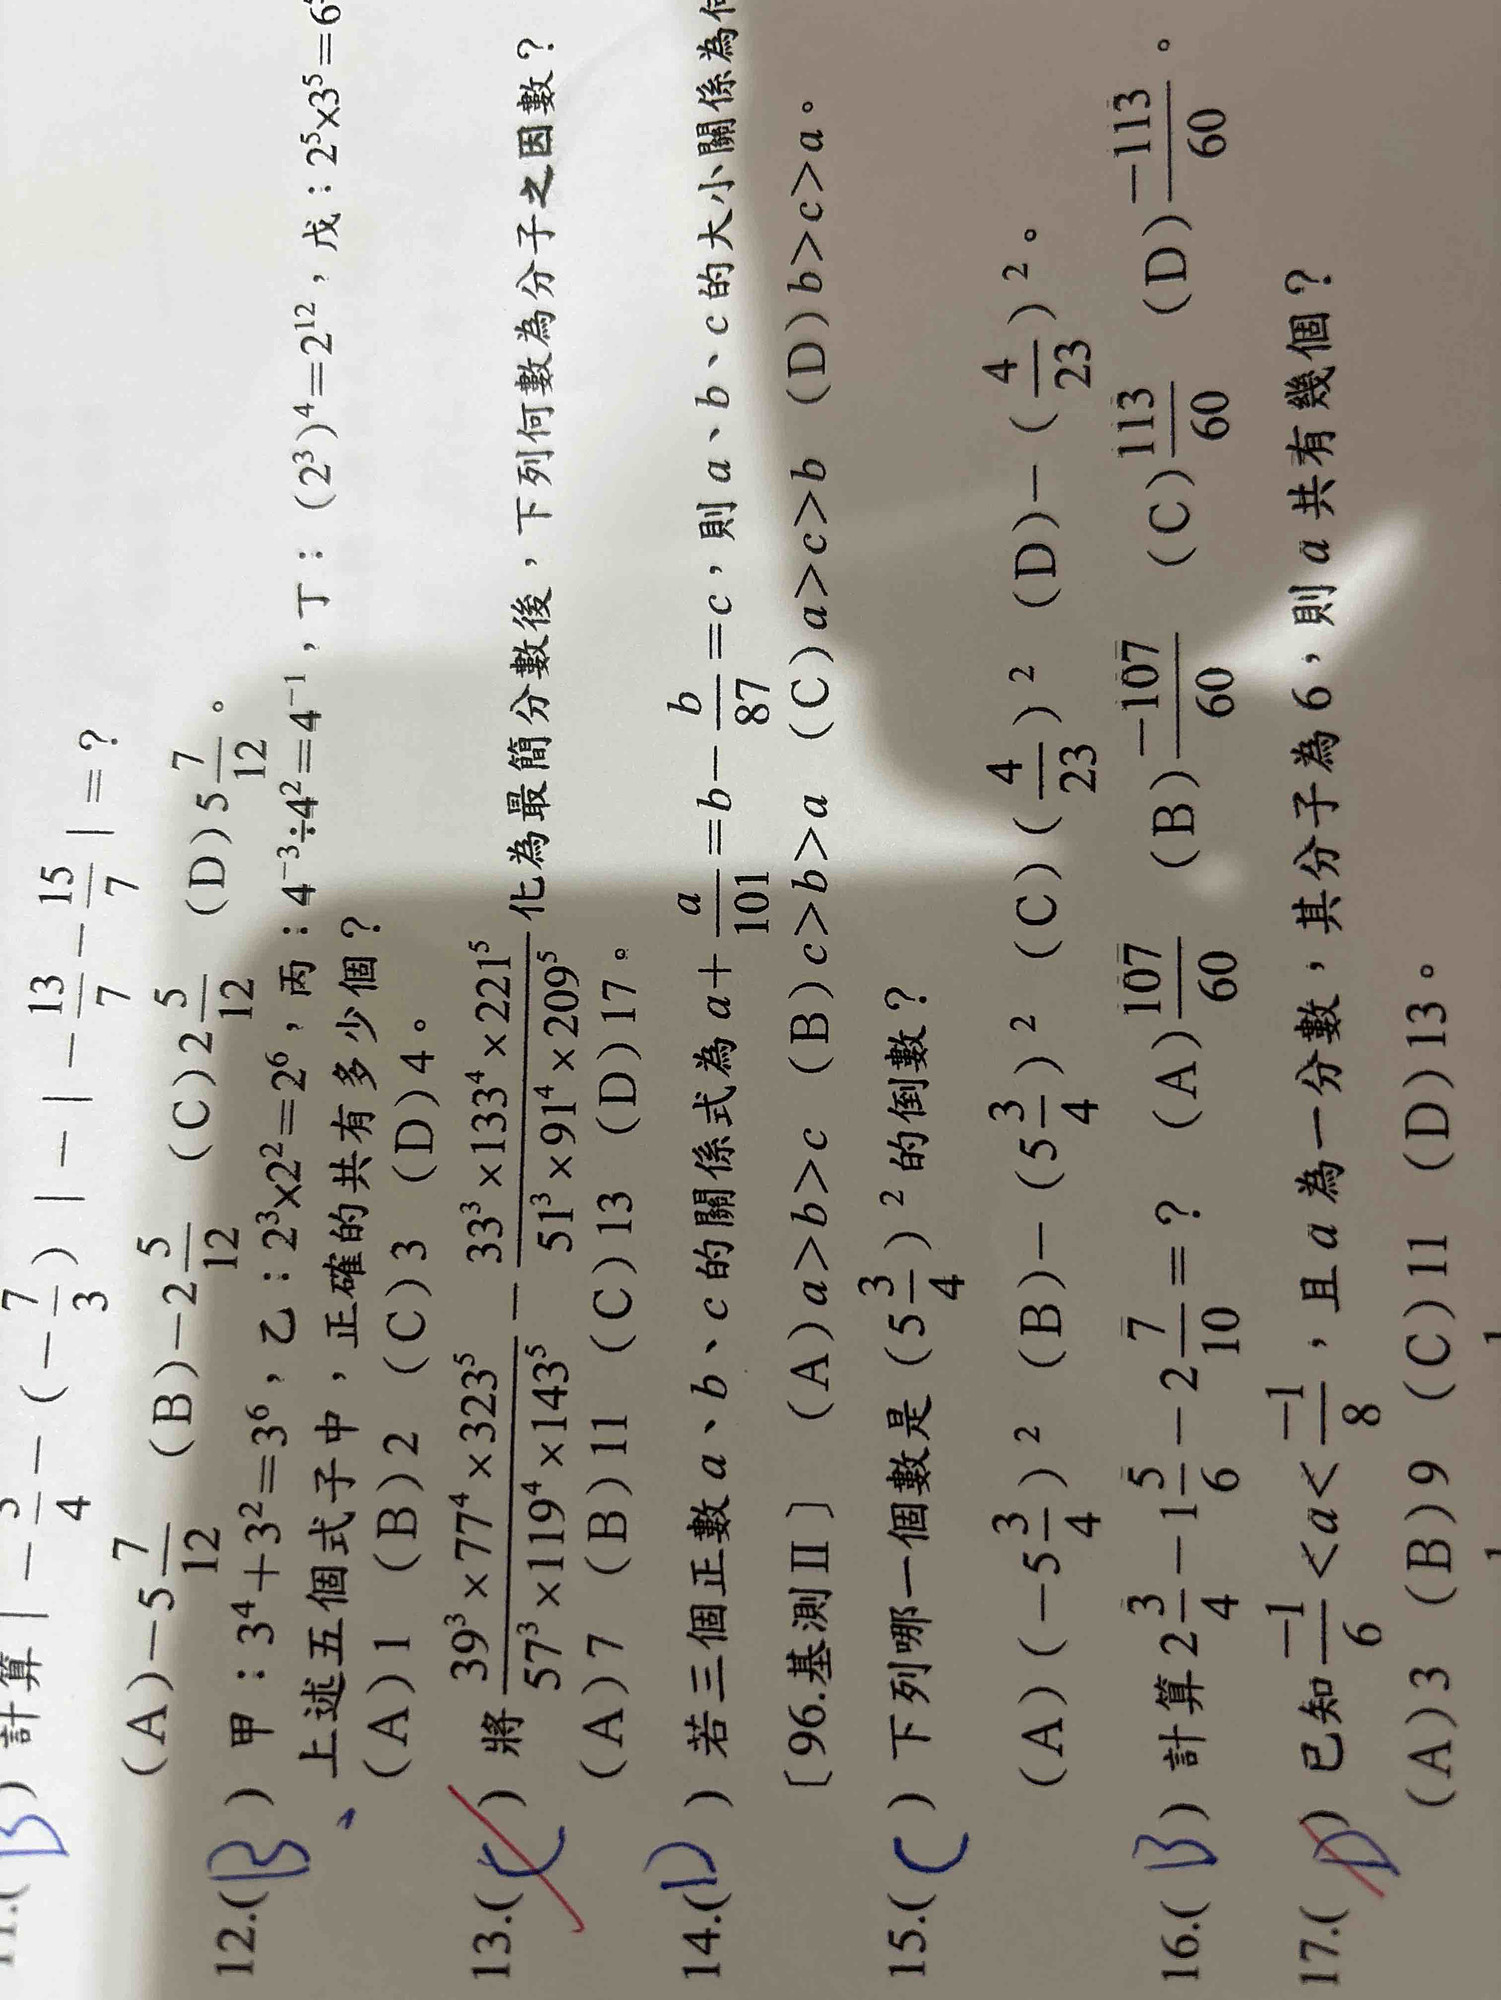 11.(B) 計算|−3/4−(−7/3)|−|−13/7−15/7|=?
(A)−5 7/12 (B)−2 5/12 (C)2 5/12 (D)5 7/12。
12.(B) 甲：3⁴+3²=3⁶，乙：2³×2²=2⁶，丙：4⁻³÷4²=4⁻¹，丁：(2³)⁴=2¹²，戊：2⁵×3⁵=6
上述五個式子中，正確的共有多少個？
(A)1 (B)2 (C)3 (D)4。
13.(C) 將 (39³×77⁴×323⁵)/(57³×119⁴×143⁵) − (33³×133⁴×221⁵)/(51³×91⁴×209⁵) 化為最簡分數後，下列何數為分子之因數？
(A)7 (B)11 (C)13 (D)17。
14.(D) 若三個正數a、b、c的關係式為a+a/101=b−b/87=c，則a、b、c的大小關係為
〔96.基測Ⅱ〕 (A)a>b>c (B)c>b>a (C)a>c>b (D)b>c>a。
15.(C) 下列哪一個數是(5 3/4)²的倒數？
(A)(−5 3/4)² (B)−(5 3/4)² (C)(4/23)² (D)−(4/23)²。
16.(B) 計算2 3/4−1 5/6−2 7/10=? (A)107/60 (B)−107/60 (C)113/60 (D)−113/60。
17.(D) 已知−1/6<a<−1/8，且a為一分數，其分子為6，則a共有幾個？
(A)3 (B)9 (C)11 (D)13。